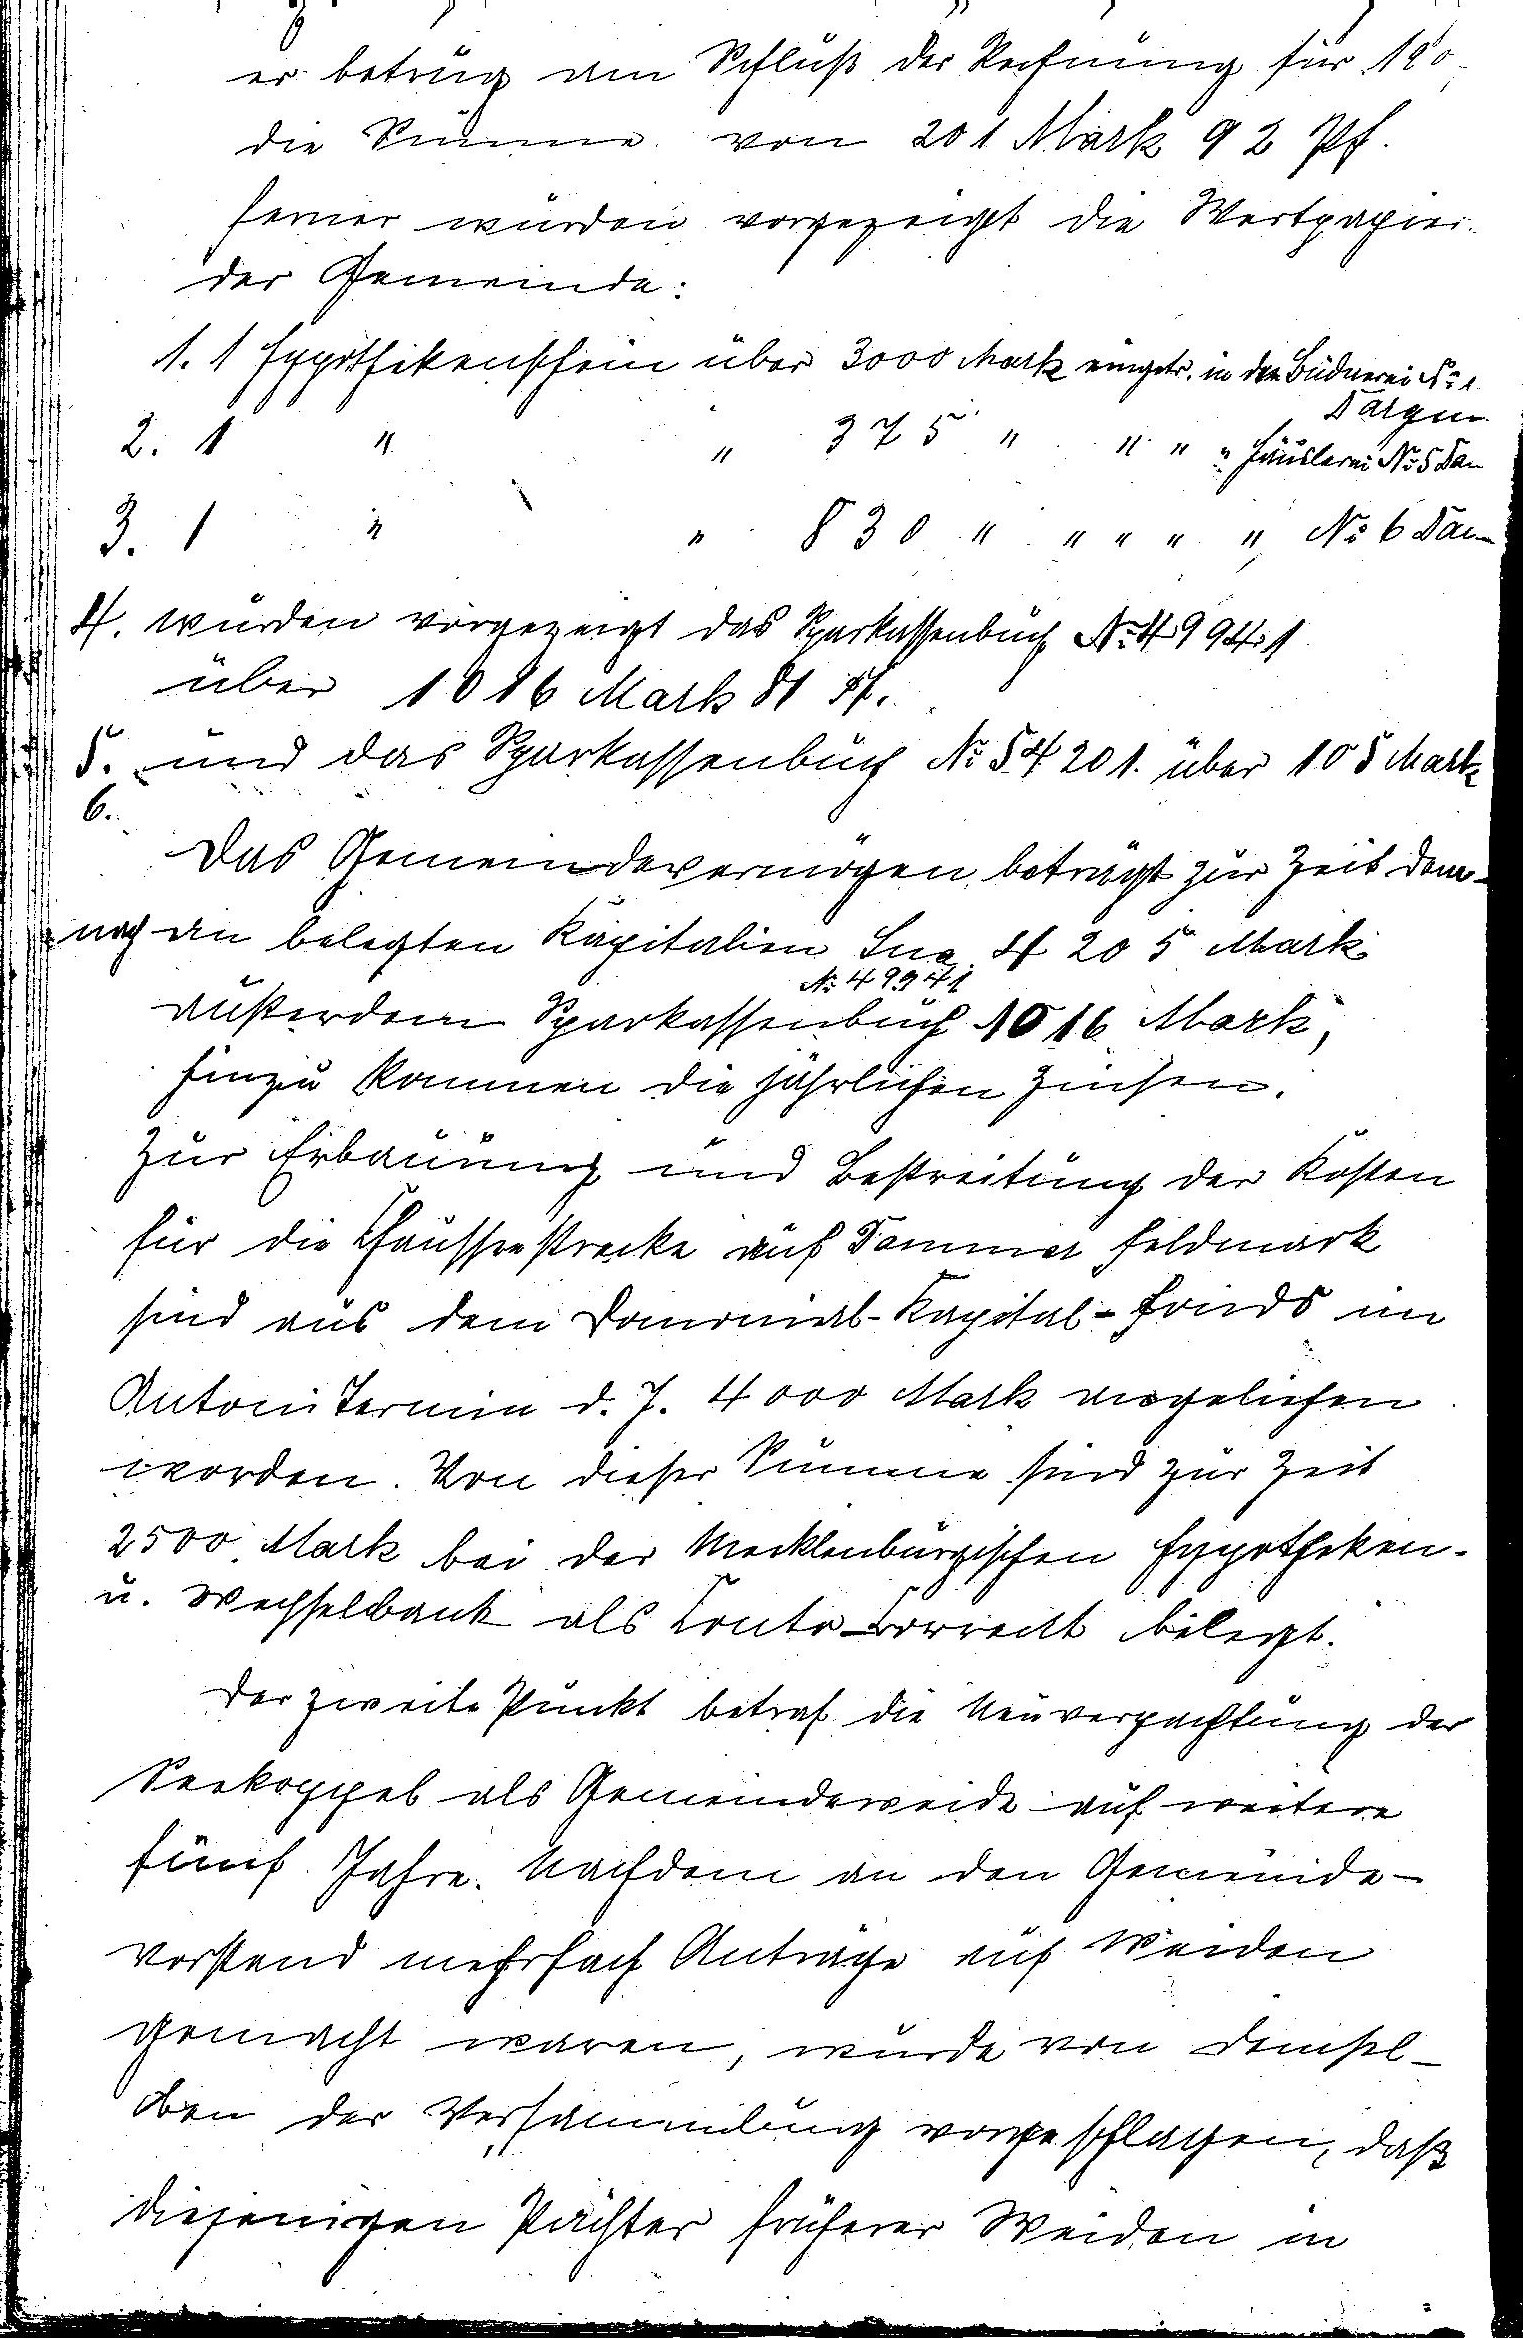 er betrug am Schluß der Rechnung für 190
die Summe von 201 Mark 92 Pf.
ferner wurden vorgezeigt die Wertpapier
der Gemeinde:
1. 1 Hypothikenschein über 3000 Mark eingetr. in der Büdnerei No 1
Dargen
2. 1 " " 375 " " " " Häuslerei No 5 Da
3. 1 " " 830 " " " " " No 6 Da
4. wurden vorgezeigt das Sparkassenbuch No 49941
über 1016 Mark 81 Pf.
5. und das Sparkassenbuch No 54201. über 105 Mark
6.
Das Gemeindevermögen beträgt zur Zeit dem-
nach an belegten Kapitalien 4205 Mark
No 49941
außerdem Sparkassenbuch 1016 Mark,
hinzu kommen die jährlichen Zinsen.
Zur Erbauung und Bestreitung der Kosten
für die Chausseestrecke auf Dammer Feldmark
sind aus dem Domonial-Kapital-Fonds im
Antoni Termin d. J. 4000 Mark angeliehen
worden. Von dieser Summe sind zur Zeit
2500 Mark bei der Mecklenburgischen Hypotheken-
u. Wechselbank als Conto-Correckt belegt.
Der zweite Punkt betraf die Neuverpachtung der
Seekoppel als Gemeindeweide auf weitere
fünf Jahre. Nachdem an den Gemeinde-
vorstand mehrfach Anträge auf Weiden
gemacht waren, wurde von demsel-
ben der Versammlung vorgeschlagen, daß
diejenigen Pächter früherer Weiden in